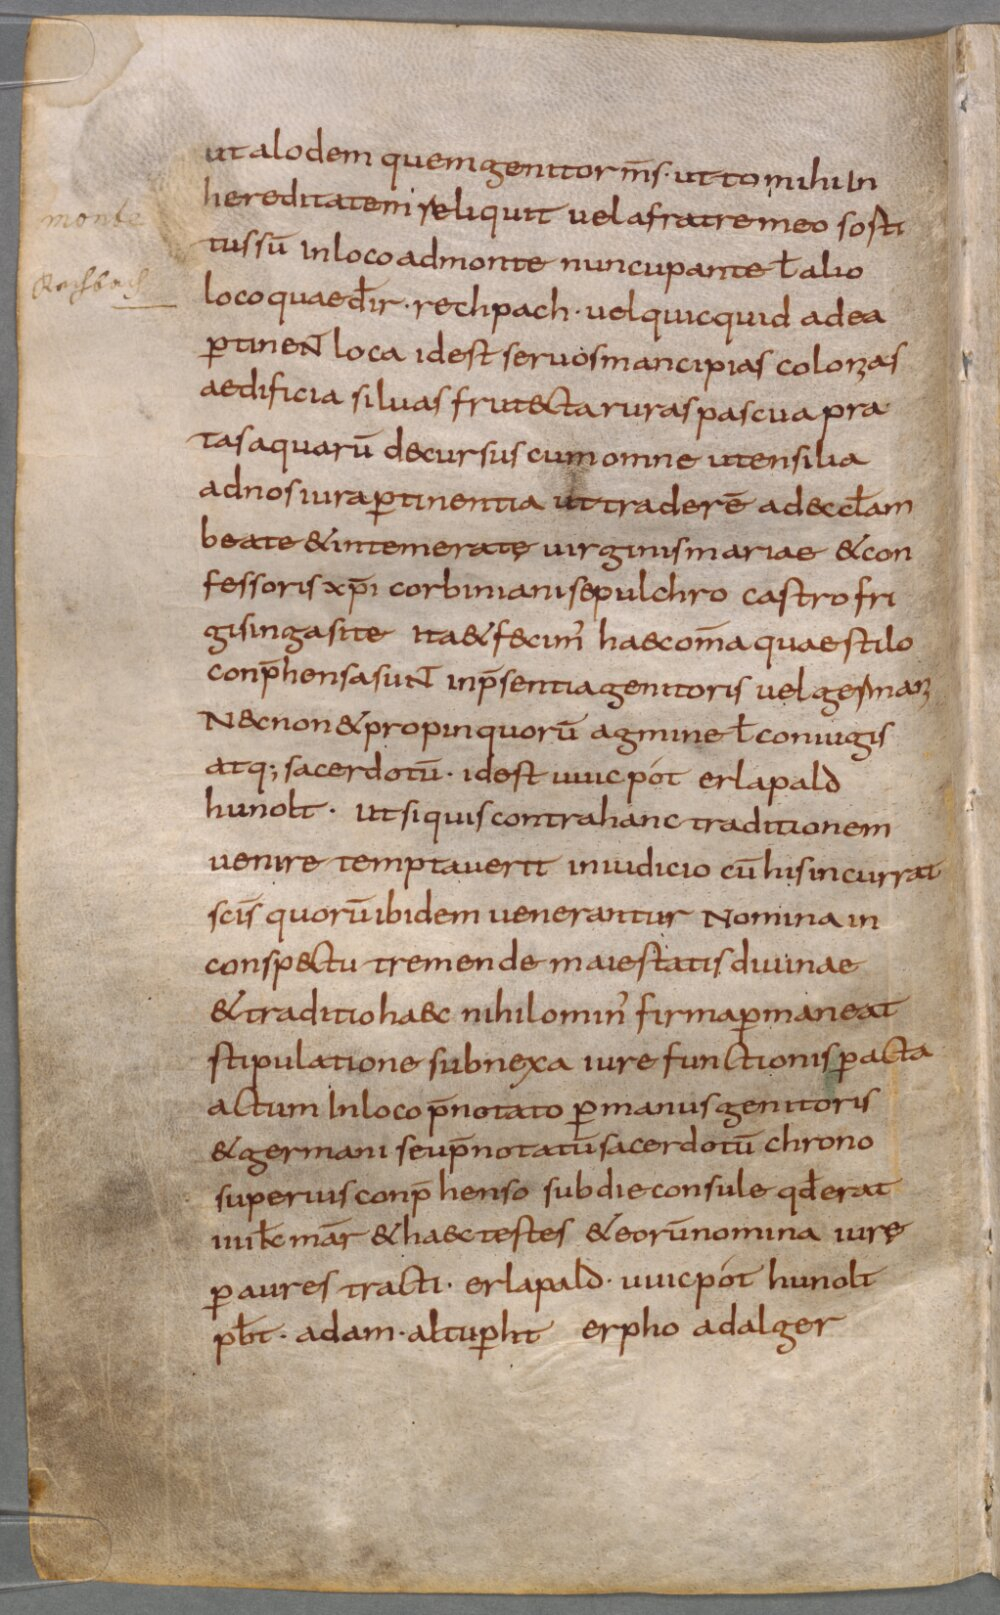 ut alodem quem genitor m̄s · utto mihi in
monte
hereditatem reliquit uel a fratre meo sosti
tussū in loco ad monte nuncupante ł alio
Rechbach
loco quae dr̄ · rechpach · uel quicquid ad ea
ꝑtineNT loca id est seruos mancipias colonias
aedificia siluas frutecta ruras pascua pra
tas aquarū decursus cum omne utensilia
ad nos iura ꝑtinentia ut traderē ad eccl̄am
beate & intemeratę uirginis mariae & con
fessoris xp̄i corbiniani sepulchro castro fri
gisinga site ita & fecim᾽ haec om̄a quae stilo
conp̄hensa suNT in p̄sentia genitoris uel germani
Necnon & propinquorū agmine ł coniugis
atq; sacerdotū · id est uuicpót erlapald
hunolt · ut si quis contra hanc traditionem
uenire temptauerit in iudicio cū his incurrat
scīs quorū ibidem uenerantur Nomina in
conspectu tremende maiestatis diuinae
& traditio haec nihilomin᾽ firma ꝑmaneat
stipulatione subnexa iure functionis ꝑacta
actum in loco p̄notato ꝑ manus genitoris
& germani seu p̄notatū sacerdotū chrono
superius conp̄henso sub die consule qd̄ erat
uiii kł mār & haec testes & eorū nomina iure
ꝑ aures tracti · erlapald · uuicpót hunolt
pb̄t · adam · altuꝑht erpho adalger